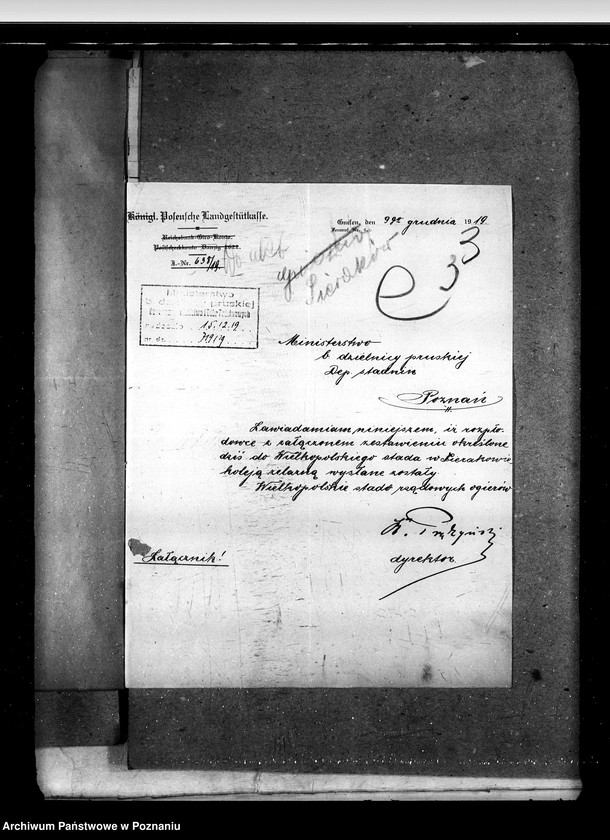 Königl. Posensche Landgestütkasse.
Reichsbank-Giro-Konto.
Postscheckkonto Danzig
J.-Nr. 638/19
Gnesen, den grudnia 1919.
Do akt
Sieraków
e 33
Ministerstwo
b. dzielnicy pruskiej
nadeszło 15.12.19
Ministerstwo
b. dzielnicy pruskiej
Dep. stadnin
Poznań
Zawiadamiam niniejszem, iż rozpło-
dowce z załączonem zestawieniu określone
dziś do Wielkopolskiego stada w Sierakowie
koleją żelazną wysłane zostały.
Wielkopolskie stado rządowych ogierów
dyrektor.
Załącznik!
Archiwum Państwowe w Poznaniu